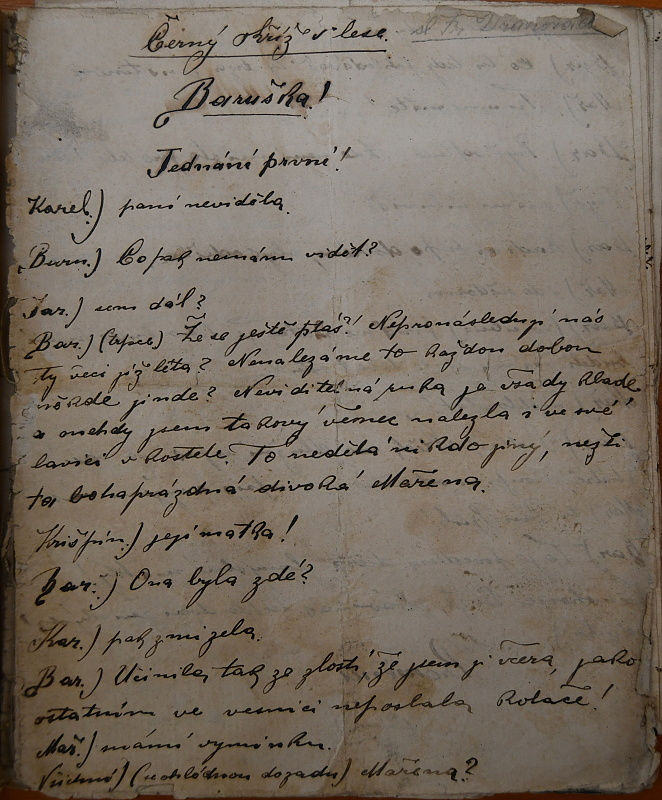 Černý kříž v lese.
Baruška!
Jednání první!
Karel.) paní neviděla.
Burm.) Copak nemám vidět?
Jar.) sem dál?
Bar.) (trpce) Že se ještě ptáš?! Nepronásledují nás
ty věci již léta? Nenalézáme to každou dobou
někde jinde? Neviditelná ruka je všady klade
a onehdy jsem takový věnec nalezla i ve své
lavici v kostele. To nedělá nikdo jiný, nežli
ta bohaprázdná divoká Mařena.
Krišpín.) její matka!
Bar.) Ona byla zdé?
Kar.) pak zmizela.
Bar.) Učinila tak ze zlosti, že jsem jí včera, jako
ostatním ve vesnici neposlala koláče!
Mař.) výminku.
Všichni) (neohlédnou dozadu) Mařena?